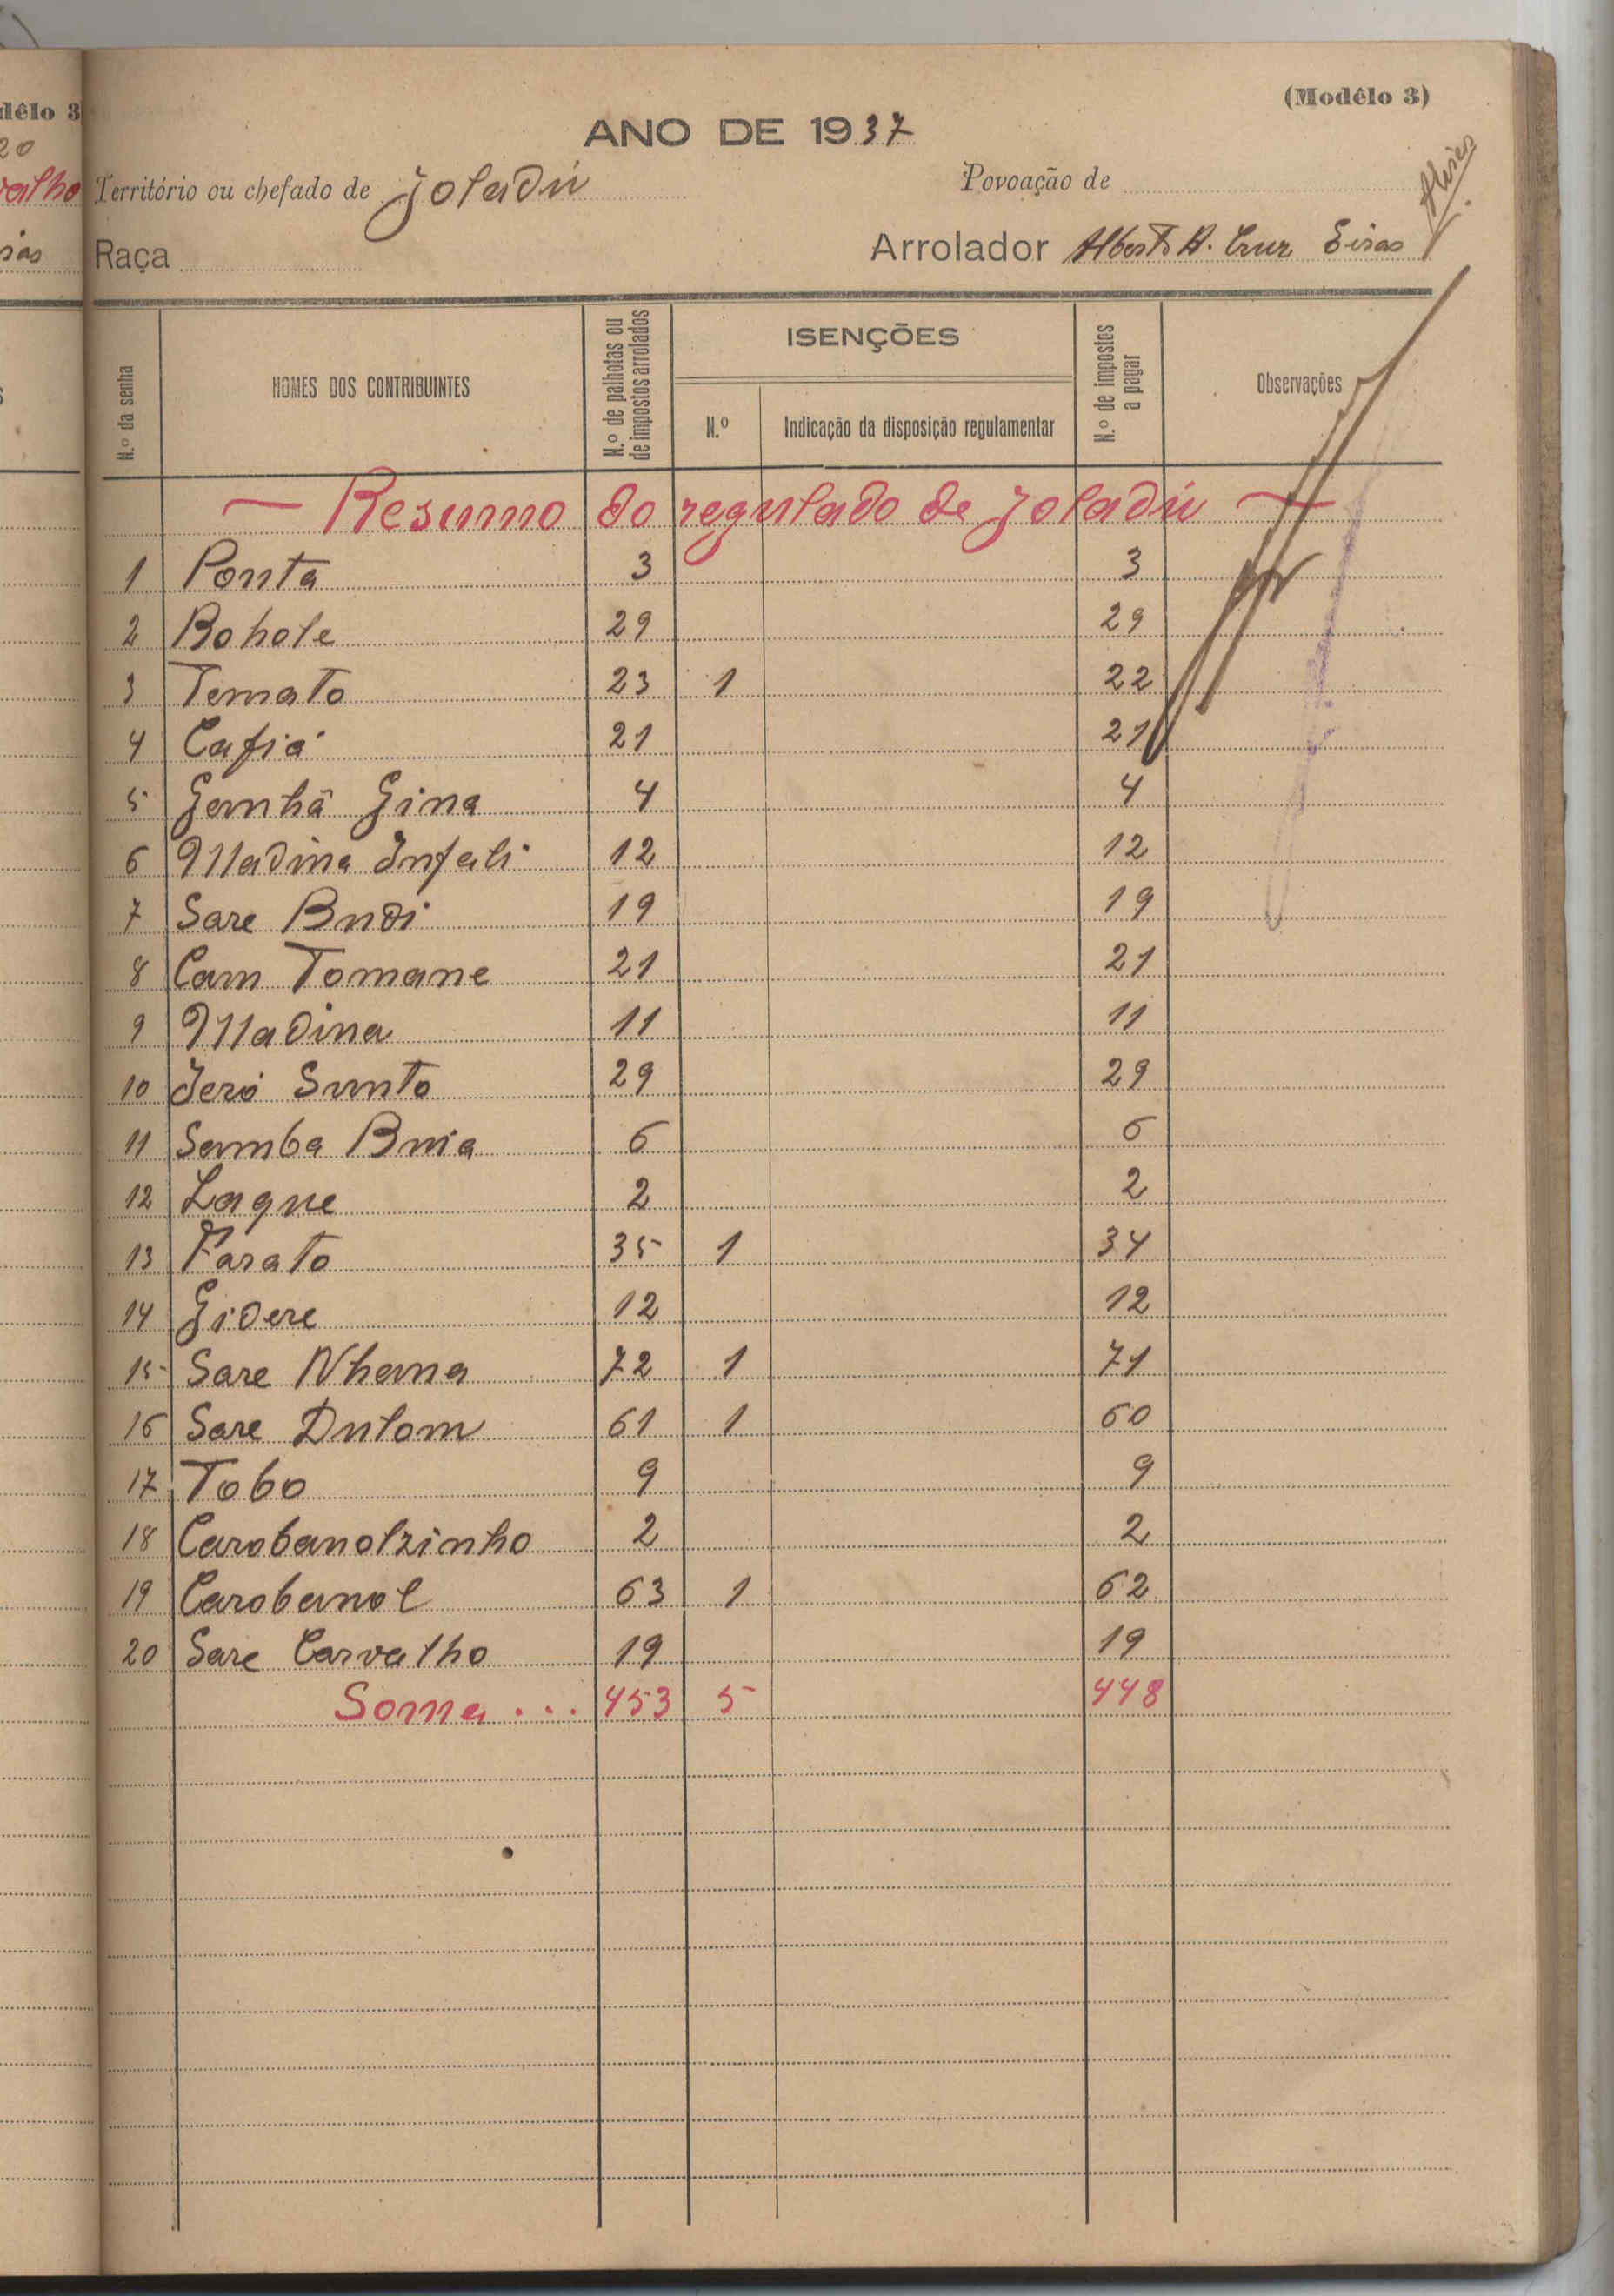 (Modêlo 3)
ANO DE 1937
Território ou chefado de Joladú
Povoação de
Raça
Arrolador Alberto A. Cruz Eiras
N.º da senha
NOMES DOS CONTRIBUINTES
N.º de palhotas ou de impostos arrolados
ISENÇÕES
N.º
Indicação da disposição regulamentar
N.º de impostos a pagar
Observações
— Resumo do regulado de Joladú —
1 Ponta 3 3
2 Bohole 29 29
3 Temato 23 1 22
4 Cafiá 21 21
5 Gamhã Gina 4 4
6 Madina Infali 12 12
7 Sare Budi 19 19
8 Cam Tomane 21 21
9 Madina 11 11
10 Jeró Sunto 29 29
11 Samba Buia 6 6
12 Laque 2 2
13 Farato 35 1 34
14 Gidere 12 12
15 Sare Nhana 72 1 71
16 Sare Dulom 61 1 60
17 Tobo 9 9
18 Carobanolzinho 2 2
19 Carobanol 63 1 62
20 Sare Carvalho 19 19
Soma... 453 5 448